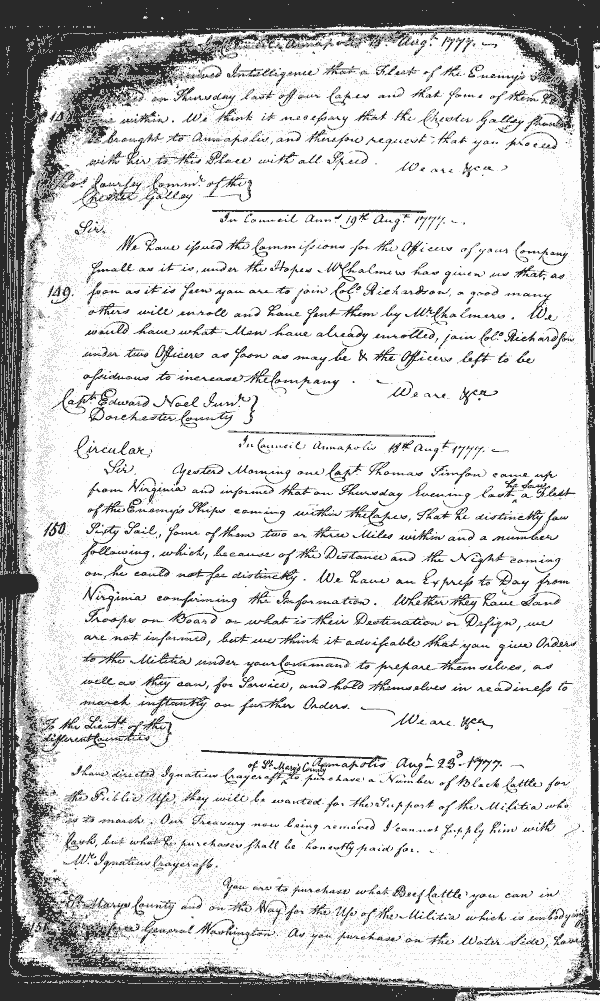 Annapolis 18. Augt. 1777. —
Intelligence that a Fleet of the Enemy's
on Thursday last off our Capes and that some of them
within. We think it necessary that the Chester Galley should
be brought to Annapolis, and therefore request, that you proceed
with her to this Place with all Speed. We are &ca
Coursey Commr. of the }
Chester Galley }
In Council Anns. 19th. Augt. 1777. —
Sir.
We have issued the Commissions for the Officers of your Company
small as it is, under the Hopes Mr Chalmers has given us that, as
149. soon as it is seen you are to join Colo. Richardson, a good many
others will enroll and have sent them by Mr Chalmers. We
would have what Men have already enrolled, join Colo. Richardson
under two Officers as soon as may be & the Officers left to be
assiduous to increase the Company. — We are &ca
Capt. Edward Noel Junr. }
Dorchester County }
In Council Annapolis 18th. Augt. 1777. —
Circular,
Sir. Yesterd Morning one Capt. Thomas Timson came up
from Virginia and informed that on Thursday Evening last, he saw a Fleet
of the Enemy's Ships coming within the Capes, That he distinctly saw
150 Sixty Sail, some of them two or three Miles within and a number
following, which, because of the Distance and the Night coming
on, he could not see distinctly. We have an Express to Day from
Virginia confirming the Information. Whether they have Land
Troops on Board or what is their Destination or Design, we
are not informed, but we think it adviseable that you give Orders
to the Militia under your Command to prepare themselves, as
well as they can, for Service, and hold themselves in readiness to
march instantly on further Orders. —
We are &ca
To the Lieuts. of the }
different Counties }
Annapolis Augt. 23d. 1777. —
I have directed Ignatius Craycraft of St. Mary's County to purchase a Number of Black Cattle for
the Public Use, they will be wanted for the Support of the Militia who
is to march. Our Treasury now being removed I cannot supply him with
Cash, but what he purchases shall be honestly paid for. —
Mr. Ignatius Craycraft.
You are to purchase what Beef Cattle you can in
St. Marys County and on the Way for the Use of the Militia which is embodying
General Washington. As you purchase on the Water Side, have